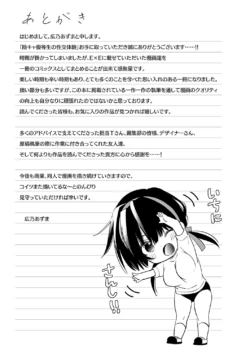 あとがき
はじめまして、広乃あずまと申します。
『陰キャ優等生の性交体験』お手に取っていただき誠にありがとうございます……!!
時間が掛かってしまいましたが、E×Eに載せていただいた漫画達を
一冊のコミックスとしてまとめることが出来て感無量です。
楽しい時間も辛い時間もあり、とても多くのことを学べた思い入れのある一冊になりました。
拙い部分も多いですが、この本に掲載されている一作一作の執筆を通して漫画のクオリティ
の向上も自分なりに頑張れたのではないかと思っております。
読んでくださった皆様も、お気に入りの作品が見つかれば嬉しいです。
多くのアドバイスで支えてくださった担当Tさん、編集部の皆様、デザイナーさん、
原稿執筆の際に作業に付き合ってくれた友人達、
そして何よりも作品を読んでくださった貴方に心から感謝を……!
今後も商業、同人で漫画を描き続けていきますので、
コイツまた描いてるな〜とのんびり
見守っていただければ幸いです。
広乃あずま
いちに
さんし!!